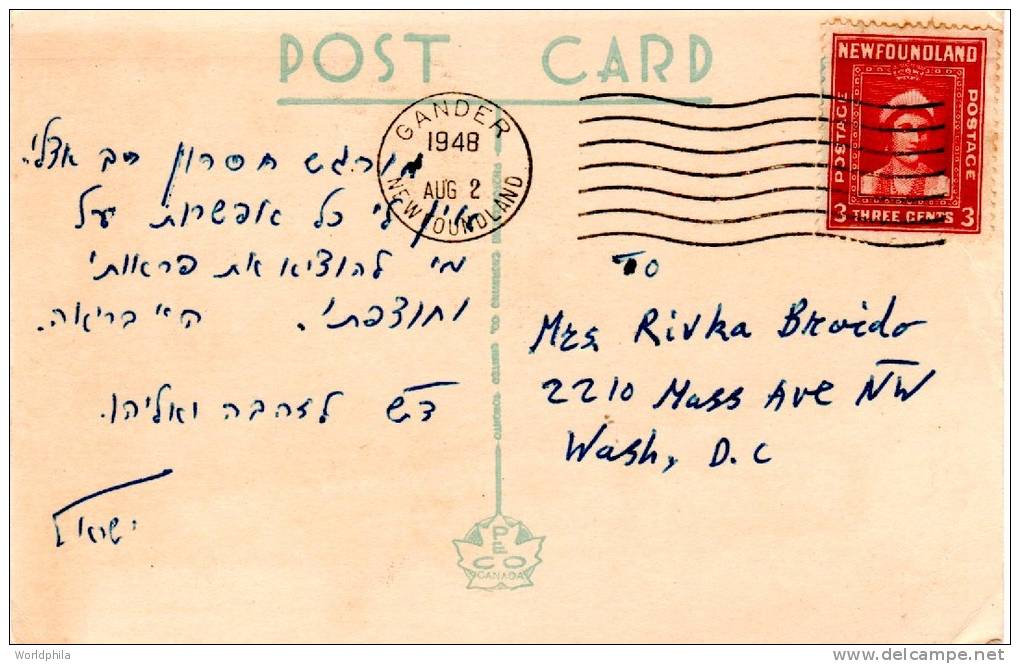 POST CARD
NEWFOUNDLAND
POSTAGE
POSTAGE
3 THREE CENTS 3
GANDER
1948
AUG 2
NEWFOUNDLAND
מורגש חסרון רב אצלי.
אין לי כל אפשרות על
מי להוציא את פראותי
וחוצפתי. היי בריאה.
ד"ש לזהבה ואליהו.
ישראל
TO
Mrs Rivka Broido
2210 Mass Ave NW
Wash, D.C
PECO
CANADA
Worldphila
www.delcampe.net